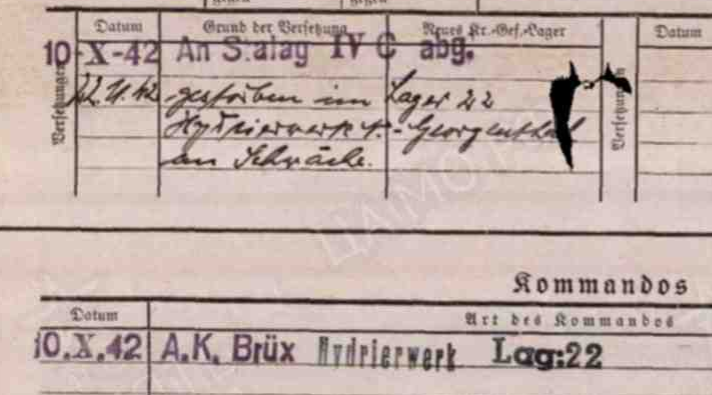 gegen gegen
Datum Grund der Versetzung Neues Kr.-Gef.-Lager Datum
10-X-42 An Stalag IV C abg.
Versetzungen
22.11.42 gestorben im Lager 22
Hydrierwerk - Georgenthal
an Schwäche.
Versetzungen
ЦАМО
Kommandos
Datum Art des Kommandos
10.X.42 A.K. Brüx Hydrierwerk Lag:22